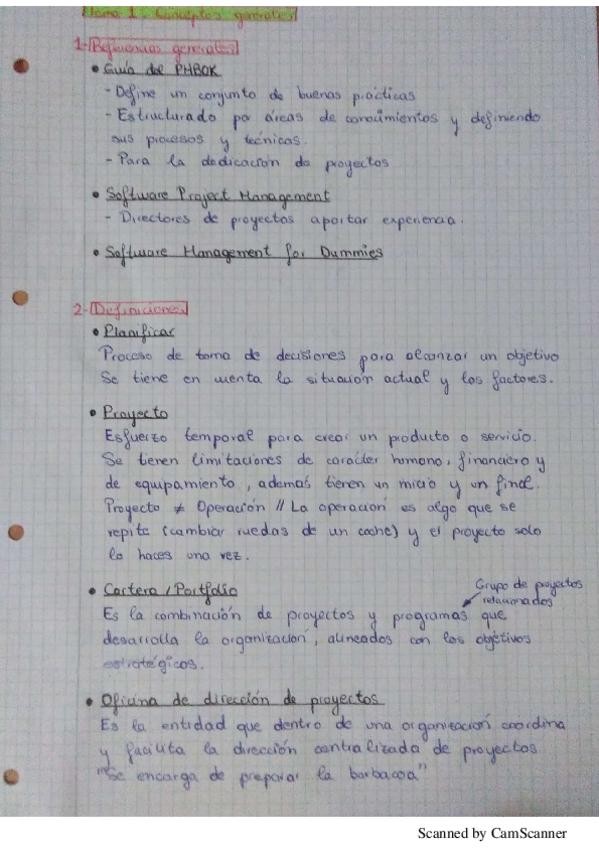 Tema 1: Conceptos generales
1- Referencias generales
• Guía del PMBOK
- Define un conjunto de buenas prácticas
- Estructurado por áreas de conocimientos y definiendo
sus procesos y técnicas.
- Para la dedicación de proyectos
• Software Project Management
- Directores de proyectos aportar experiencia.
• Software Management for Dummies
2- Definiciones
• Planificar
Proceso de toma de decisiones para alcanzar un objetivo
Se tiene en cuenta la situación actual y los factores.
• Proyecto
Esfuerzo temporal para crear un producto o servicio.
Se tienen limitaciones de carácter humano, financiero y
de equipamiento, ademas tienen un inicio y un final.
Proyecto ≠ Operación // La operación es algo que se
repite (cambiar ruedas de un coche) y el proyecto solo
lo haces una vez.
• Cartera / Portfolio
Grupo de proyectos
relacionados
Es la combinación de proyectos y programas que
desarrolla la organización, alineados con los objetivos
estratégicos.
• Oficina de dirección de proyectos
Es la entidad que dentro de una organización coordina
y facilita la dirección centralizada de proyectos
"Se encarga de preparar la barbacoa"
Scanned by CamScanner